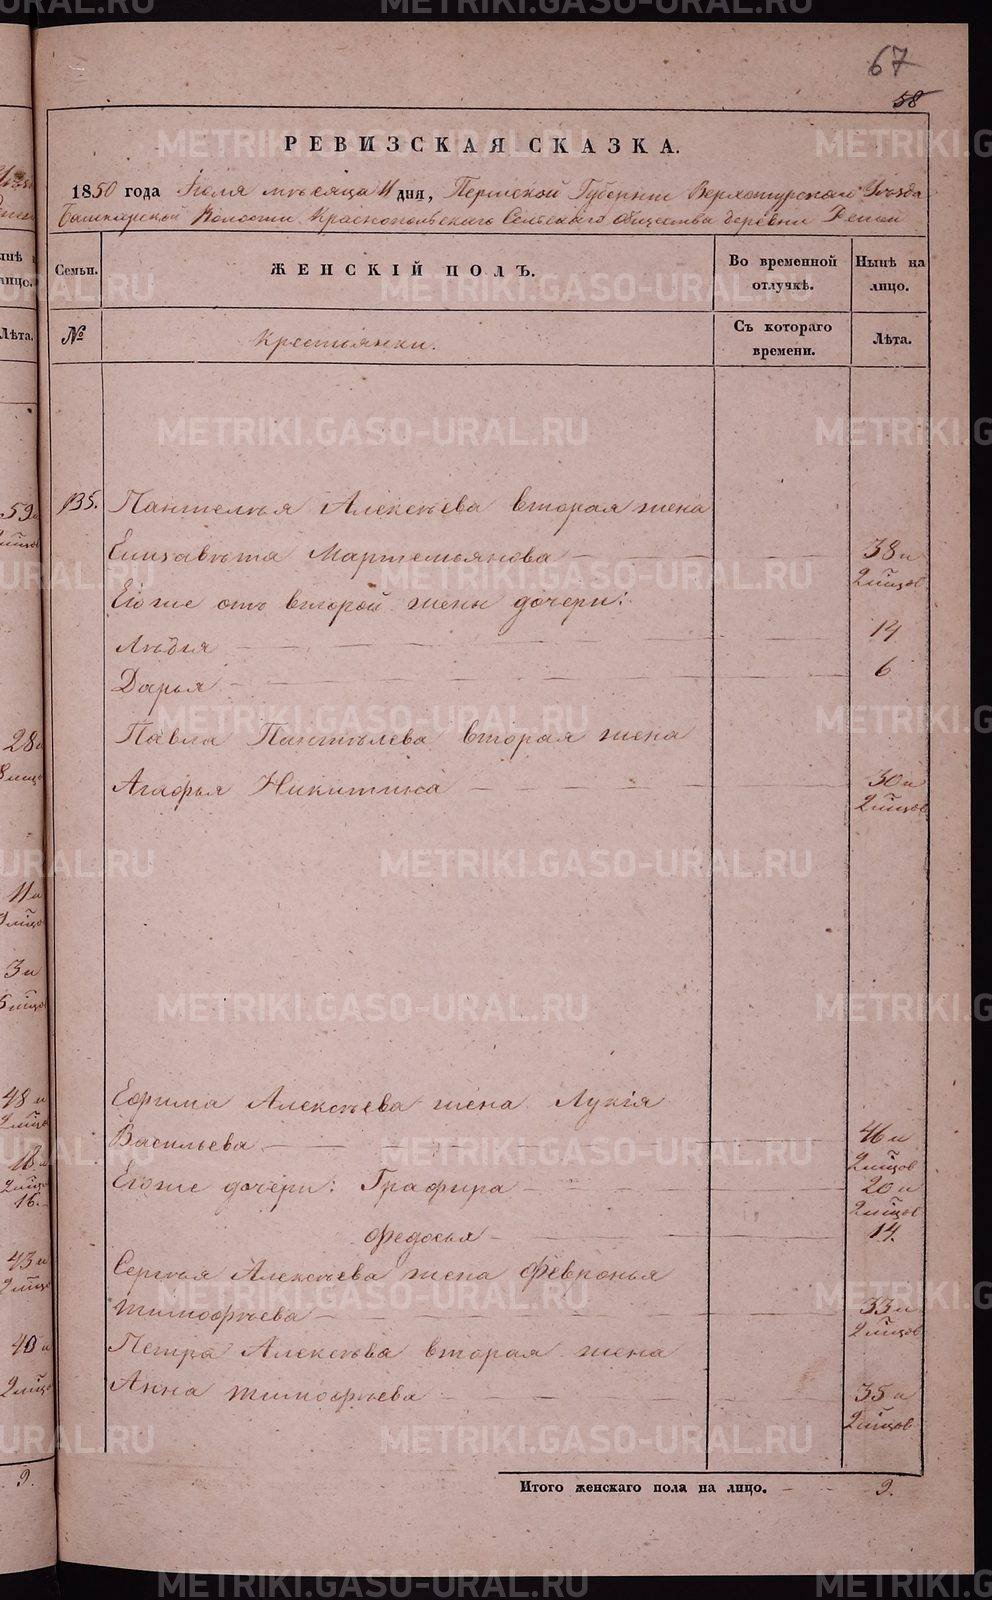 67
58
РЕВИЗСКАЯ СКАЗКА.
1850 года Июля мѣсяца 11 дня, Пермской Губернии Верхотурскаго Уѣзда
Башкарской Волости Краснопольскаго Сельскаго Общества деревни
Семьи.
ЖЕНСКІЙ ПОЛЪ.
Во временной отлучкѣ.
Нынѣ на лицо.
№
Крестьянки.
Съ котораго времени.
Лѣта.
135. Пантелѣя Алексѣева вторая жена
Елизавѣта Мартемьянова 38 и
2 м͠цов
Егоже отъ второй жены дочери:
Лидія 14
Дарья 6
Павла Пантѣлева вторая жена
Агафья Никитина 30 и
2 м͠цов
Ефима Алексѣева жена Лукія
Васильева 46 и
2 м͠цов
Егоже дочери: Графира 20 и
2 м͠цов
Федосья 14.
Сергѣя Алексѣева жена Февронья
Тимофѣева 33 и
2 м͠цов
Петра Алексѣва вторая жена
Анна Тимофѣева 35 и
2 м͠цов
Итого женскаго пола на лицо. 9.
METRIKI.GASO-URAL.RU